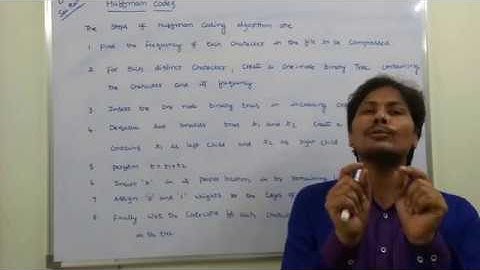 Huffman Codes
The Steps of Huffman Coding algorithm are
1. Find the frequency of each character in the file to be compressed
2. For each distinct character, create a one-node binary tree containing
the character and its frequency
3. Insert the one node binary trees in increasing
4. Dequeue two smallest trees t1 and t2 Create a
containing t1 as left child and t2 as right child
5 perform t=t1+t2
6 Insert "z" in its proper location in the remaining
7 Assign '0' and '1' weights to the edges of
8 Finally write the codeword for each character
in the tree